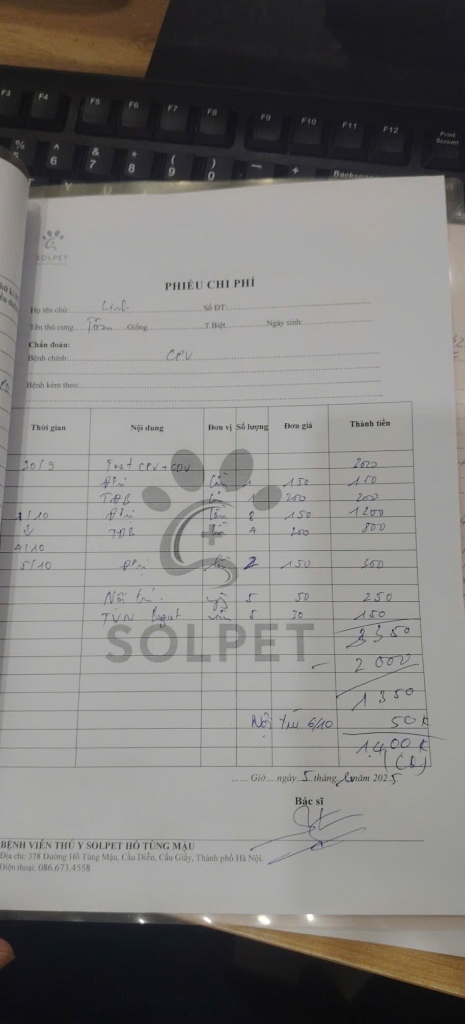 F3 F4 F5 F6 F7 F8 F9 F10 F11 F12 Print Screen
% 5 ^ 6 & 7 * 8 ( 9 ) 0 — + Backspace
Y U
SOLPET
PHIẾU CHI PHÍ
Họ tên chủ: Linh Số ĐT:
Tên thú cưng: Tôm Giống: T.Biệt: Ngày sinh:
Chẩn đoán:
Bệnh chính: CPV
Bệnh kèm theo:
Thời gian Nội dung Đơn vị Số lượng Đơn giá Thành tiền
30/9 Test CPV + CDV 200
Đtrị lần 1 150 150
TĐB 1 200 200
1/10 Đtrị lần 8 150 1200
↓ TĐB lần 4 200 800
4/10
5/10 Đtrị 2 150 300
Nội trú 5 50 250
TVN 5 30 150
3350
- 2000
1350
Nội trú 6/10 50K
1.400K
(CK)
SOLPET
...... Giờ ... ngày 5 tháng năm 2025
Bác sĩ
BỆNH VIỆN THÚ Y SOLPET HỒ TÙNG MẬU
Địa chỉ: 378 Đường Hồ Tùng Mậu, Cầu Diễn, Cầu Giấy, Thành phố Hà Nội.
Điện thoại: 086.673.4558